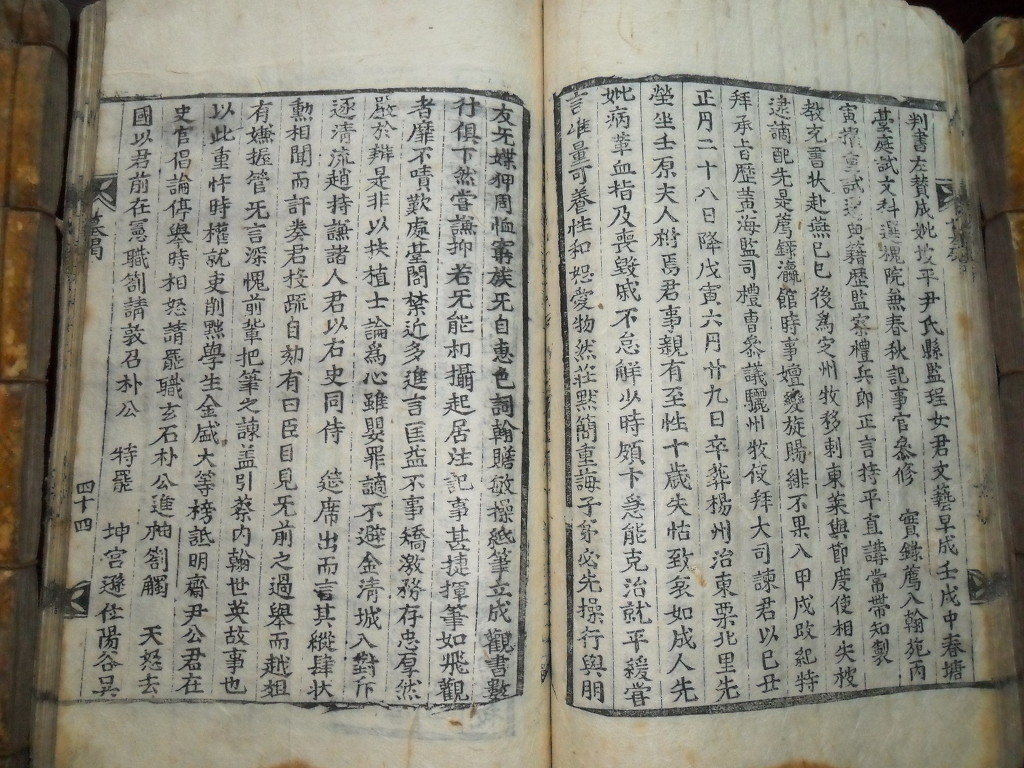 判書左贊成妣坡平尹氏縣監珵女君文藝早成壬戌中春塘
臺庭試文科選槐院兼春秋記事官參修 實錄薦入翰苑丙
寅擢重試 典籍歷監察禮兵郎正言持平直講常帶知製
教充書狀赴燕己巳後爲定州牧移刺東萊與節度使相失被
逮謫配先是薦錄瀛館時事嬗變旋賜緋不果入甲戌政紀特
拜承旨歷黃海監司禮曹參議驪州牧使拜大司諫君以己丑
正月二十八日降戊寅六月廿九日卒葬楊州治東栗北里先
塋坐壬原夫人祔焉君事親有至性十歲失怙致哀如成人先
妣病革血指及喪毀戚不怠解少時頗卞急能克治就平緩嘗
言唯量可養性和恕愛物然莊默簡重誨子弟必先操行與朋
友無媟狎周恤窮族無自惠色詞翰贍敏操紙筆立成觀書數
行俱下然嘗謙抑若無能初攝起居注記事甚捷揮筆如飛觀
者靡不嘖歎處臺閣禁近多進言匡益不事矯激務存忠厚然
嚴於辨是非以扶植士論爲心雖嬰罪謫不避金清城入對斥
逐清流趙持謙諸人君以右史同侍 筵席出而言其縱肆狀
勳相聞而訐奏君投疏自劾有曰臣目見無前之過舉而越趄
有嫌握管無言深愧前輩把筆之諫盖引蔡內翰世英故事也
以此重忤時權就吏削黜學生金盛大等榜詆明齋尹公君在
史官倡論停舉時相怒請罷職玄石朴公進袖劄觸 天怒去
國以君前在憲職劄請敦召朴公 特罷 坤宮遜任陽谷吳
墓碣
四十四